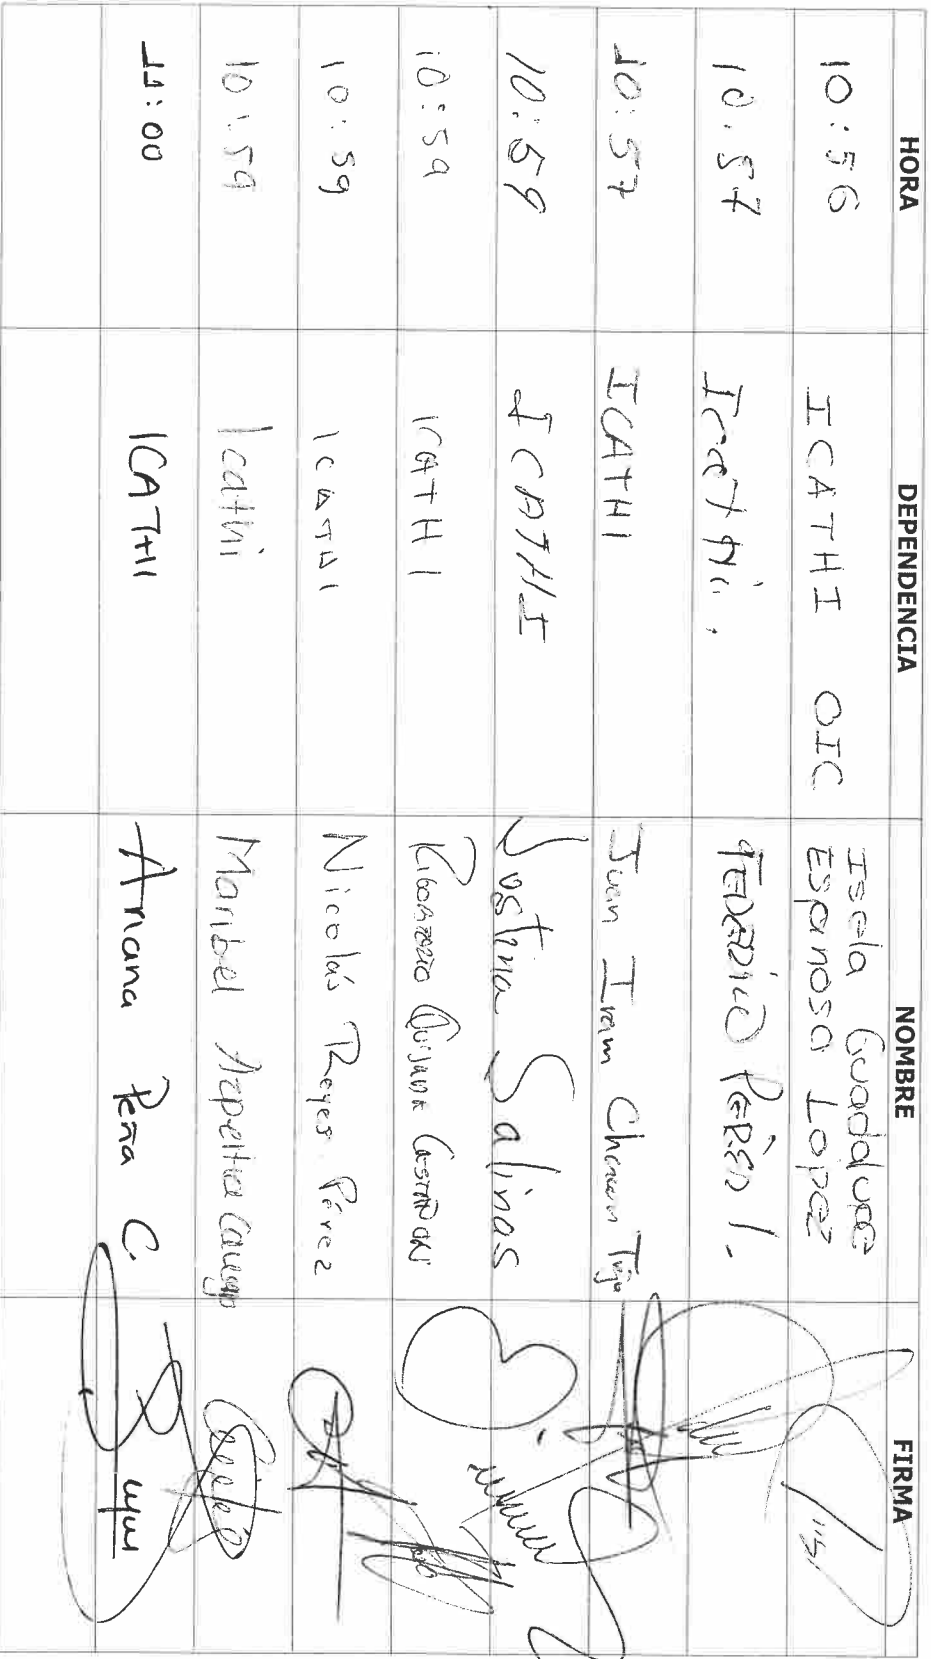 HORA DEPENDENCIA NOMBRE FIRMA
10:56 ICATHI OIC Isela Guadalupe
Espanosa Lopez
10:57 Icathi. FEDERICO PÉREZ I.
10:57 ICATHI Juan Iram
10:59 ICATHI Justina Salinas
10:59 ICATHI
10:59 ICATHI Nicolás Reyes Pérez
10:59 Icathi Maribel
11:00 ICATHI Ariana Peña C.